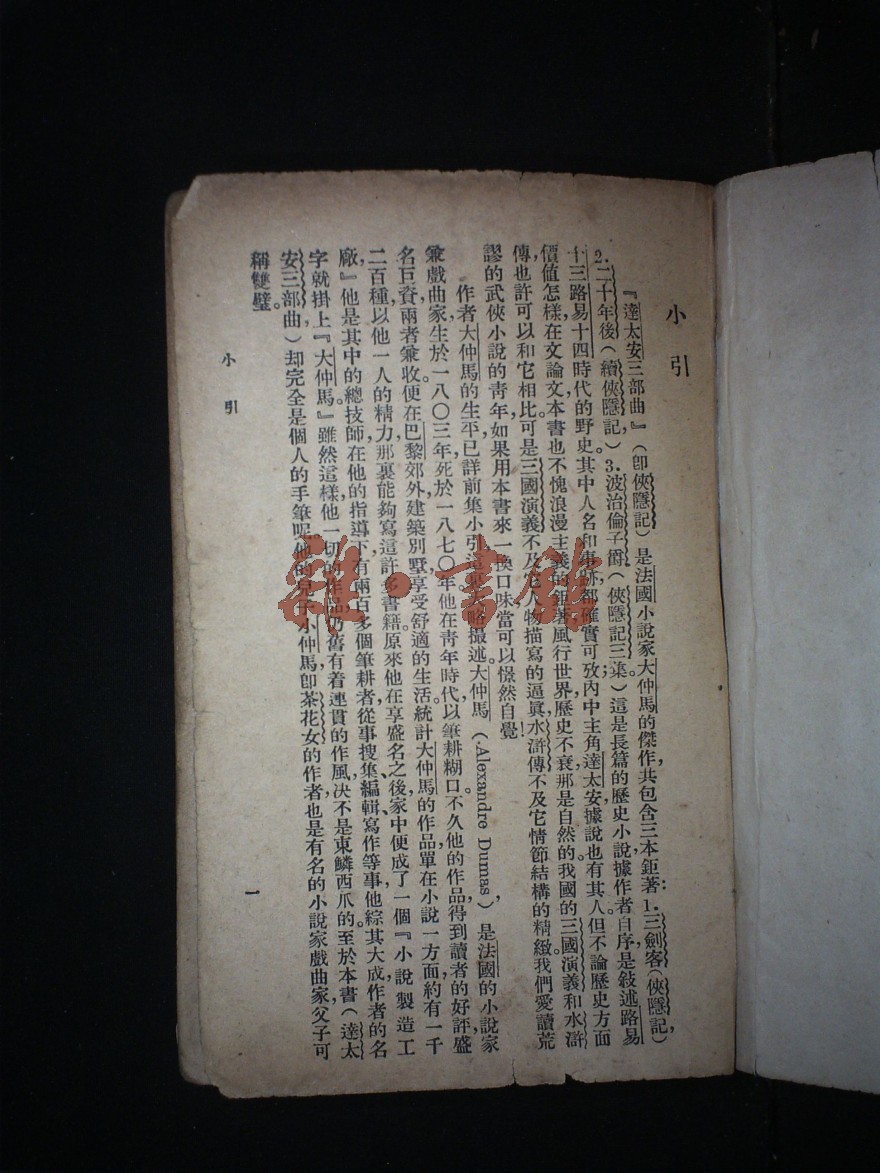 小引
『達太安三部曲』（卽俠隱記）是法國小說家大仲馬的傑作，共包含三本鉅著：1.三劍客（俠隱記），
2.二十年後（續俠隱記）3.波治倫子爵（俠隱記三集）；這是長篇的歷史小說，據作者自序，是敍述路易
十三路易十四時代的野史。其中人名和事跡都確實可攷；內中主角達太安，據說也有其人。但不論歷史方面
價值怎樣，在文論文，本書也不愧浪漫主義的鉅著，風行世界，歷史不衰，那是自然的。我國的三國演義和水滸
傳也許可以和它相比。可是三國演義不及它人物描寫的逼眞，水滸傳不及它情節結構的精緻。我們愛讀荒
謬的武俠小說的靑年，如果用本書來一換口味，當可以憬然自覺！
作者大仲馬的生平，已詳前集小引，這裏大略撮述。大仲馬（Alexandre Dumas），是法國的小說家
兼戲曲家，生於一八〇三年，死於一八七〇年。他在靑年時代，以筆耕糊口。不久他的作品，得到讀者的好評，盛
名巨資，兩者兼收，便在巴黎郊外建築別墅，享受舒適的生活。統計大仲馬的作品，單在小說一方面，約有一千
二百種，以他一人的精力，那裏能夠寫這許多書籍。原來他在享盛名之後，家中便成了一個『小說製造工
廠，』他是其中的總技師，在他的指導下，有兩百多個筆耕者，從事搜集、編輯、寫作等事，他綜其大成，作者的名
字就掛上『大仲馬。』雖然這樣，他一切的作品，乃舊有着連貫的作風，決不是東鱗西爪的。至於本書（達太
安三部曲）却完全是個人的手筆呢。他的兒子小仲馬，卽茶花女的作者，也是有名的小說家戲曲家，父子可
稱雙璧。
小引
一
雜·書館